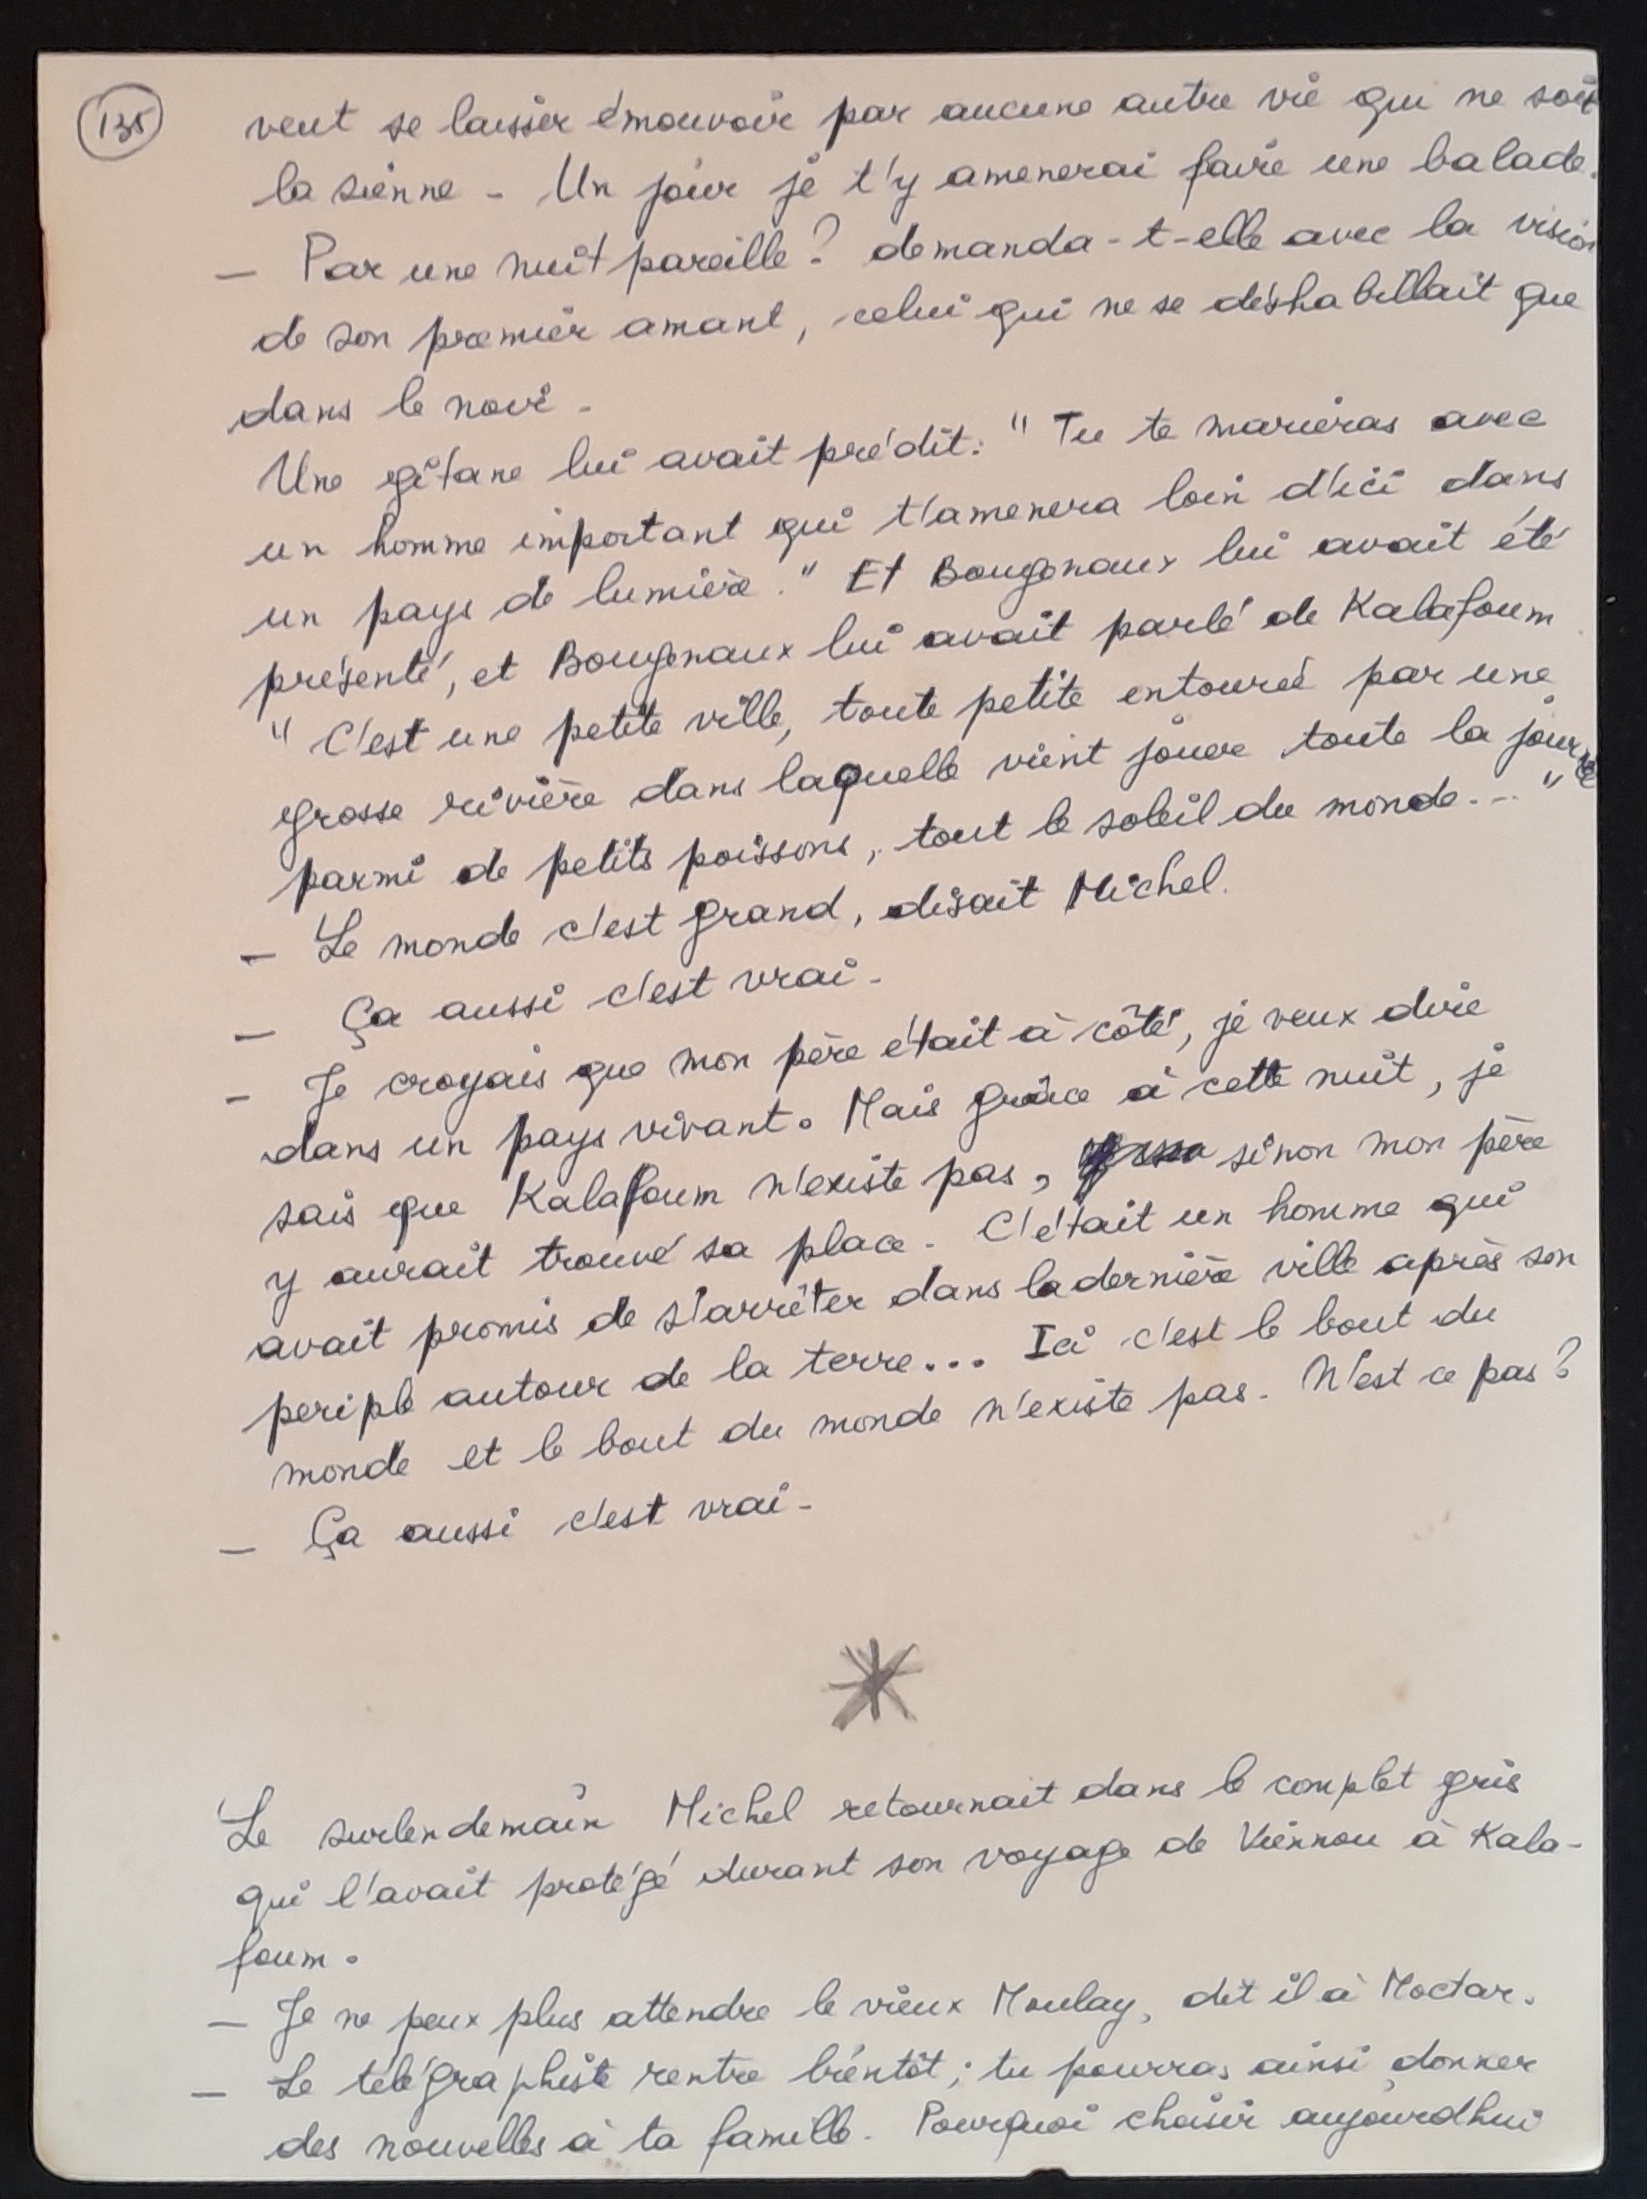 135
veut se laisser émouvoir par aucune autre vie qui ne soit
la sienne - Un jour je t'y amenerai faire une balade.
- Par une nuit pareille ? demanda-t-elle avec la vision
de son premier amant, celui qui ne se déshabillait que
dans le noir -
Une gitane lui avait prédit : " Tu te marieras avec
un homme important qui t'amenera loin d'ici dans
un pays de lumière. " Et Bougenaux lui avait été
présenté, et Bougenaux lui avait parlé de Kalafoum
" C'est une petite ville, toute petite entourée par une
grosse rivière dans laquelle vient jouer toute la journée
parmi de petits poissons, tout le soleil du monde... "
- Le monde c'est grand, disait Michel.
- Ça aussi c'est vrai -
- Je croyais que mon père était à côté, je veux dire
dans un pays vivant. Mais grâce à cette nuit, je
sais que Kalafoum n'existe pas, sinon mon père
y aurait trouvé sa place - C'était un homme qui
avait promis de s'arrêter dans la dernière ville après son
periple autour de la terre... Ici c'est le bout du
monde et le bout du monde n'existe pas - N'est ce pas ?
- Ça aussi c'est vrai -
*
Le surlendemain Michel retournait dans le complet gris
qui l'avait protégé durant son voyage de Viennou à Kala-
foum.
- Je ne peux plus attendre le vieux Moulay, dit il à Moctar.
- Le télégraphiste rentre bientôt ; tu pourras ainsi donner
des nouvelles à ta famille. Pourquoi choisir aujourdhui